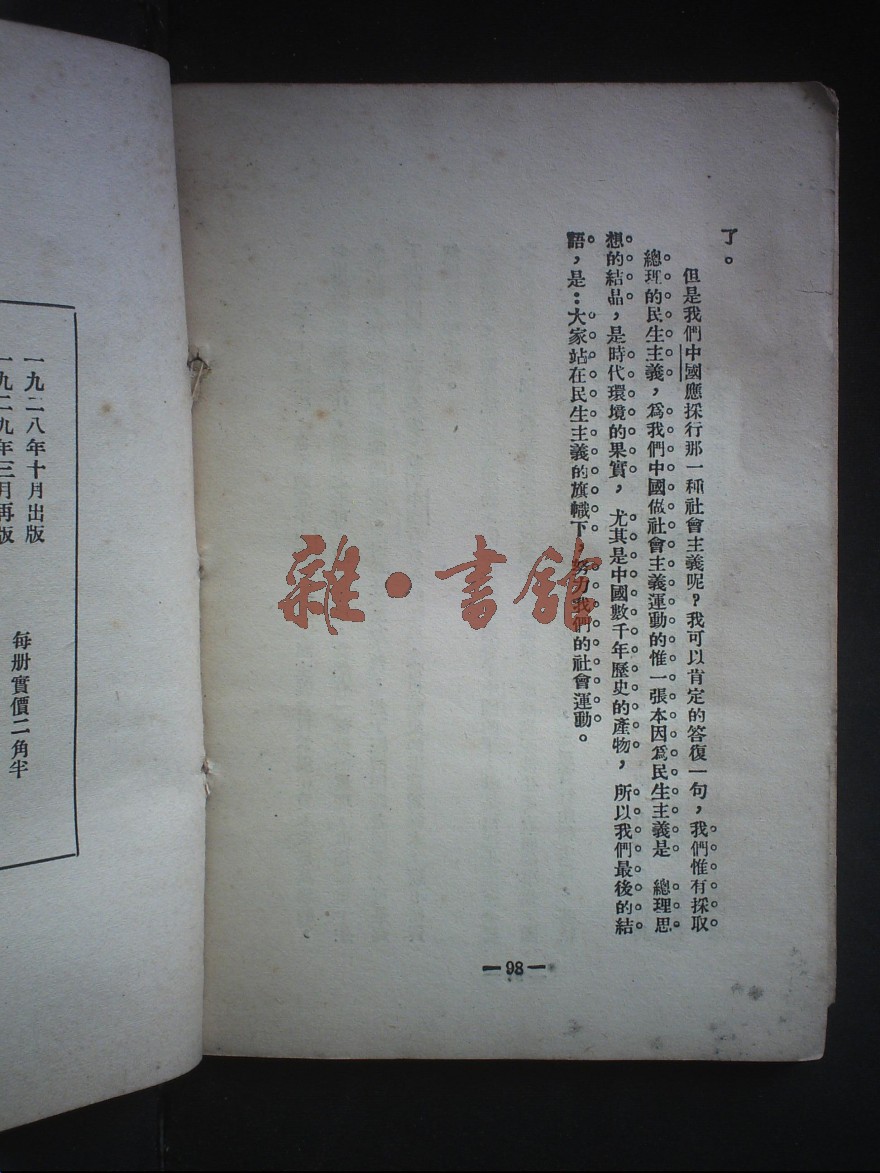 了。
但是我們中國應採行那一種社會主義呢？我可以肯定的答復一句，我們惟有採取
總理的民生主義，爲我們中國做社會主義運動的惟一張本因爲民生主義是　總理思
想的結晶，是時代環境的果實，尤其是中國數千年歷史的產物，所以我們最後的結
語，是：大家站在民生主義的旗幟下，努力我們的社會運動。
—98—
雜·書館
一九二八年十月出版
一九二九年三月再版
每册實價二角半